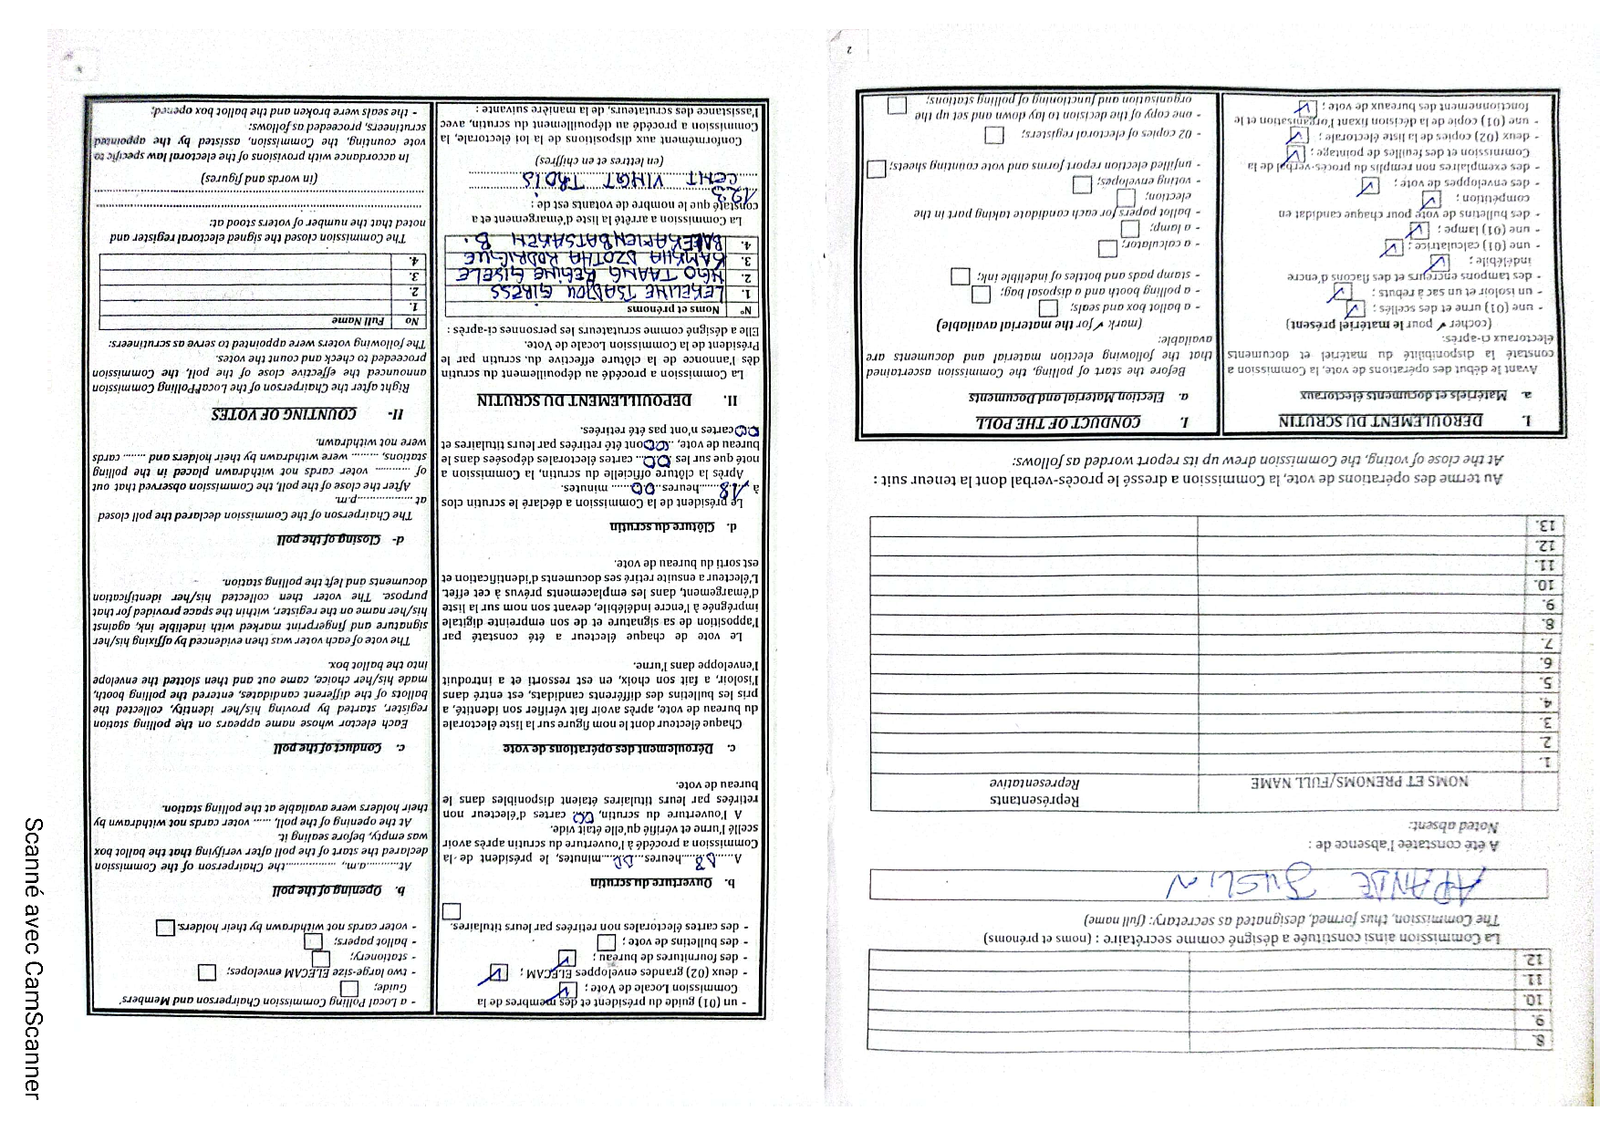 8.
9.
10.
11.
12.
La Commission ainsi constituée a désigné comme secrétaire : (noms et prénoms)
The Commission, thus formed, designated as secretary: (full name)
APANDE JUSLIN
A été constatée l'absence de :
Noted absent:
NOMS ET PRENOMS/FULL NAME
Représentants
Representative
1.
2.
3.
4.
5.
6.
7.
8.
9.
10.
11.
12.
13.
Au terme des opérations de vote, la Commission a dressé le procès-verbal dont la teneur suit :
At the close of voting, the Commission drew up its report worded as follows:
I. DEROULEMENT DU SCRUTIN
a. Matériels et documents électoraux
Avant le début des opérations de vote, la Commission a
constaté la disponibilité du matériel et documents
électoraux ci-après:
(cocher ✓ pour le matériel présent)
- une (01) urne et des scellés ;
- un isoloir et un sac à rebuts ;
- des tampons encreurs et des flacons d'encre
indélébile ;
- une (01) calculatrice ;
- une (01) lampe ;
- des bulletins de vote pour chaque candidat en
compétition ;
- des enveloppes de vote ;
- des exemplaires non remplis du procès-verbal de la
Commission et des feuilles de pointage ;
- deux (02) copies de la liste électorale ;
- une (01) copie de la décision fixant l'organisation et le
fonctionnement des bureaux de vote ;
I. CONDUCT OF THE POLL
a. Election Material and Documents
Before the start of polling, the Commission ascertained
that the following election material and documents are
available:
(mark ✓ for the material available)
- a ballot box and seals;
- a polling booth and a disposal bag;
- stump pads and bottles of indelible ink;
- a calculator;
- a lamp;
- ballot papers for each candidate taking part in the
election;
- voting envelopes;
- unfilled election report forms and vote counting sheets;
- 02 copies of electoral registers;
- one copy of the decision to lay down and set up the
organisation and functioning of polling stations;
2
- un (01) guide du président et des membres de la
Commission Locale de Vote ;
- deux (02) grandes enveloppes ELECAM ;
- des fournitures de bureau ;
- des bulletins de vote ;
- des cartes électorales non retirées par leurs titulaires.
b. Ouverture du scrutin
A....08....heures...00...minutes, le président de la
Commission a procédé à l'ouverture du scrutin après avoir
scellé l'urne et vérifié qu'elle était vide.
A l'ouverture du scrutin, 00 cartes d'électeur non
retirées par leurs titulaires étaient disponibles dans le
bureau de vote.
c. Déroulement des opérations de vote
Chaque électeur dont le nom figure sur la liste électorale
du bureau de vote, après avoir fait vérifier son identité, a
pris les bulletins des différents candidats, est entré dans
l'isoloir, a fait son choix, en est ressorti et a introduit
l'enveloppe dans l'urne.
Le vote de chaque électeur a été constaté par
l'apposition de sa signature et de son empreinte digitale
imprégnée à l'encre indélébile, devant son nom sur la liste
d'émargement, dans les emplacements prévus à cet effet.
L'électeur a ensuite retiré ses documents d'identification et
est sorti du bureau de vote.
d. Clôture du scrutin
Le président de la Commission a déclaré le scrutin clos
à 18 heures...00... minutes.
Après la clôture officielle du scrutin, la Commission a
noté que sur les 00... cartes électorales déposées dans le
bureau de vote, ...00 ont été retirées par leurs titulaires et
00 cartes n'ont pas été retirées.
II. DEPOUILLEMENT DU SCRUTIN
La Commission a procédé au dépouillement du scrutin
dès l'annonce de la clôture effective du scrutin par le
Président de la Commission Locale de Vote.
Elle a désigné comme scrutateurs les personnes ci-après :
N° Noms et prénoms
1. LEKELINE TSADJOU GIRESS
2. NGO TAANG REGINE GISELE
3. KAMKHA DZOTHA RODRIGUE
4.
La Commission a arrêté la liste d'émargement et a
constaté que le nombre de votants est de :
123
CENT VINGT TROIS
(en lettres et en chiffres)
Conformément aux dispositions de la loi électorale, la
Commission a procédé au dépouillement du scrutin, avec
l'assistance des scrutateurs, de la manière suivante :
- a Local Polling Commission Chairperson and Members'
Guide;
- two large-size ELECAM envelopes;
- stationery;
- ballot papers;
- voter cards not withdrawn by their holders.
b. Opening of the poll
At...........a.m., ..............the Chairperson of the Commission
declared the start of the poll after verifying that the ballot box
was empty, before sealing it.
At the opening of the poll, ...... voter cards not withdrawn by
their holders were available at the polling station.
c. Conduct of the poll
Each elector whose name appears on the polling station
register, started by proving his/her identity, collected the
ballots of the different candidates, entered the polling booth,
made his/her choice, came out and then slotted the envelope
into the ballot box.
The vote of each voter was then evidenced by affixing his/her
signature and fingerprint marked with indelible ink, against
his/her name on the register, within the space provided for that
purpose. The voter then collected his/her identification
documents and left the polling station.
d- Closing of the poll
The Chairperson of the Commission declared the poll closed
at ..................p.m.
After the close of the poll, the Commission observed that out
of .......... voter cards not withdrawn placed in the polling
stations, ........ were withdrawn by their holders and ....... cards
were not withdrawn.
II- COUNTING OF VOTES
Right after the Chairperson of the Local Polling Commission
announced the effective close of the poll, the Commission
proceeded to check and count the votes.
The following voters were appointed to serve as scrutineers:
No Full Name
1.
2.
3.
4.
The Commission closed the signed electoral register and
noted that the number of voters stood at:
(in words and figures)
In accordance with provisions of the electoral law specific to
vote counting, the Commission, assisted by the appointed
scrutineers, proceeded as follows:
- the seals were broken and the ballot box opened;
Scanné avec CamScanner